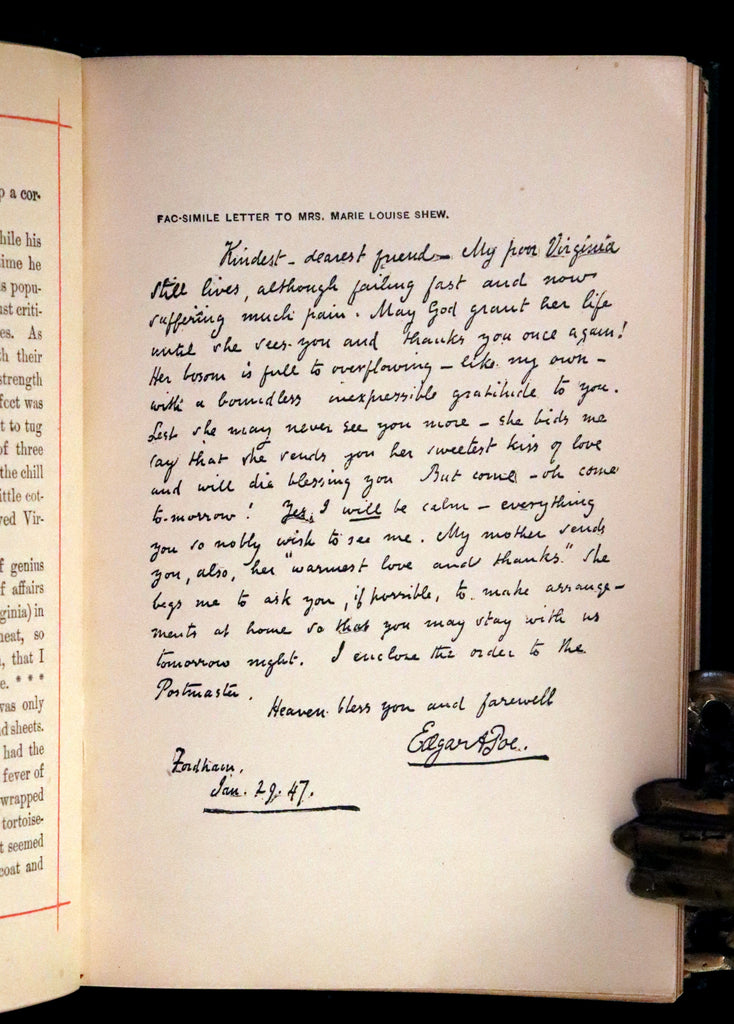 p a cor-
hile his
time he
s popu-
st criti-
es. As
th their
strength
fect was
t to tug
of three
the chill
ittle cot-
ved Vir-
f genius
f affairs
ginia) in
neat, so
, that I
e. * * *
was only
d sheets.
had the
fever of
wrapped
tortoise-
t seemed
coat and
FAC-SIMILE LETTER TO MRS. MARIE LOUISE SHEW.
Kindest – dearest friend – My poor Virginia
still lives, although failing fast and now
suffering much pain. May God grant her life
until she sees you and thanks you once again!
Her bosom is full to overflowing – like my own –
with a boundless inexpressible gratitude to you.
Lest she may never see you more – she bids me
say that she sends you her sweetest kiss of love
and will die blessing you But come – oh come
to-morrow! Yes, I will be calm – everything
you so nobly wish to see me. My mother sends
you, also, her "warmest love and thanks." She
begs me to ask you, if possible, to make arrange-
ments at home so that you may stay with us
tomorrow night. I enclose the order to the
Postmaster.
Heaven bless you and farewell
Edgar A Poe.
Fordham,
Jan. 29. 47.